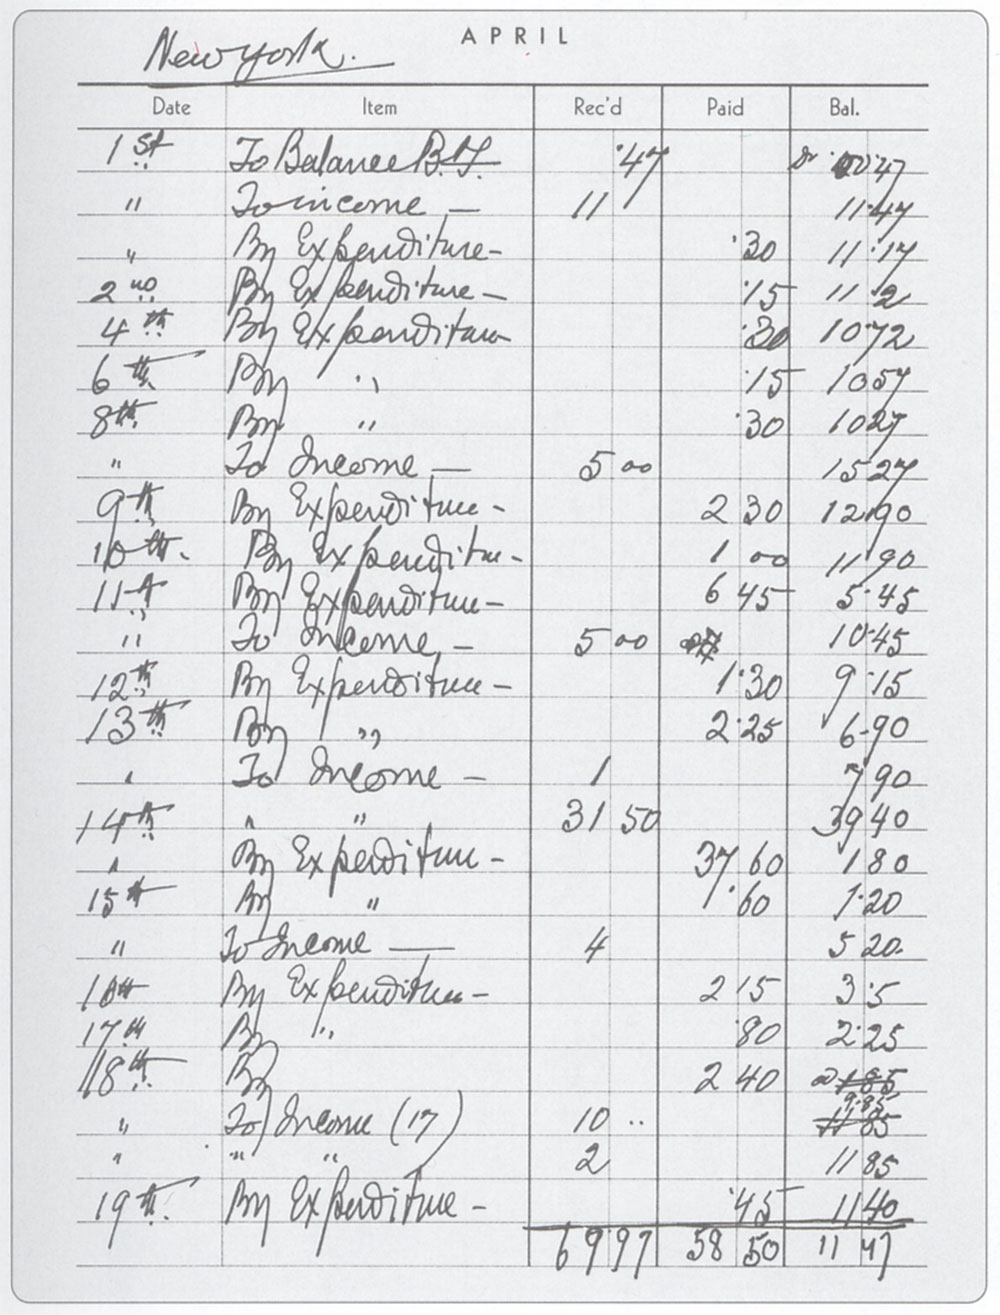 APRIL
New York.
Date Item Rec'd Paid Bal.
1st To Balance B.F. .47 47
" To income — 11 11.47
" By Expenditure — .30 11.17
2nd By Expenditure — .15 11.2
4th By Expenditure .30 10.72
6th By " .15 10 57
8th By " .30 10 27
" To Income — 5 00 15 27
9th By Expenditure - 2 30 12 90
10th. By Expenditure - 1 00 11 90
11th By Expenditure - 6 45 5.45
" To Income, - 5 00 10.45
12th By Expenditure - 1.30 9.15
13th By " 2.25 6.90
" To Income - 1 7 90
14th " " 31 50 39 40
" By Expenditure - 37 60 1 80
15th By " .60 1.20
" To Income — 4 5 20.
16th By Expenditure - 2 15 3.5
17th By " .80 2.25
18th By 2 40
" To Income (17) 10 .. 9.85
" " " 2 11 85
19th By Expenditure - .45 11 40
69 97 58 50 11 47